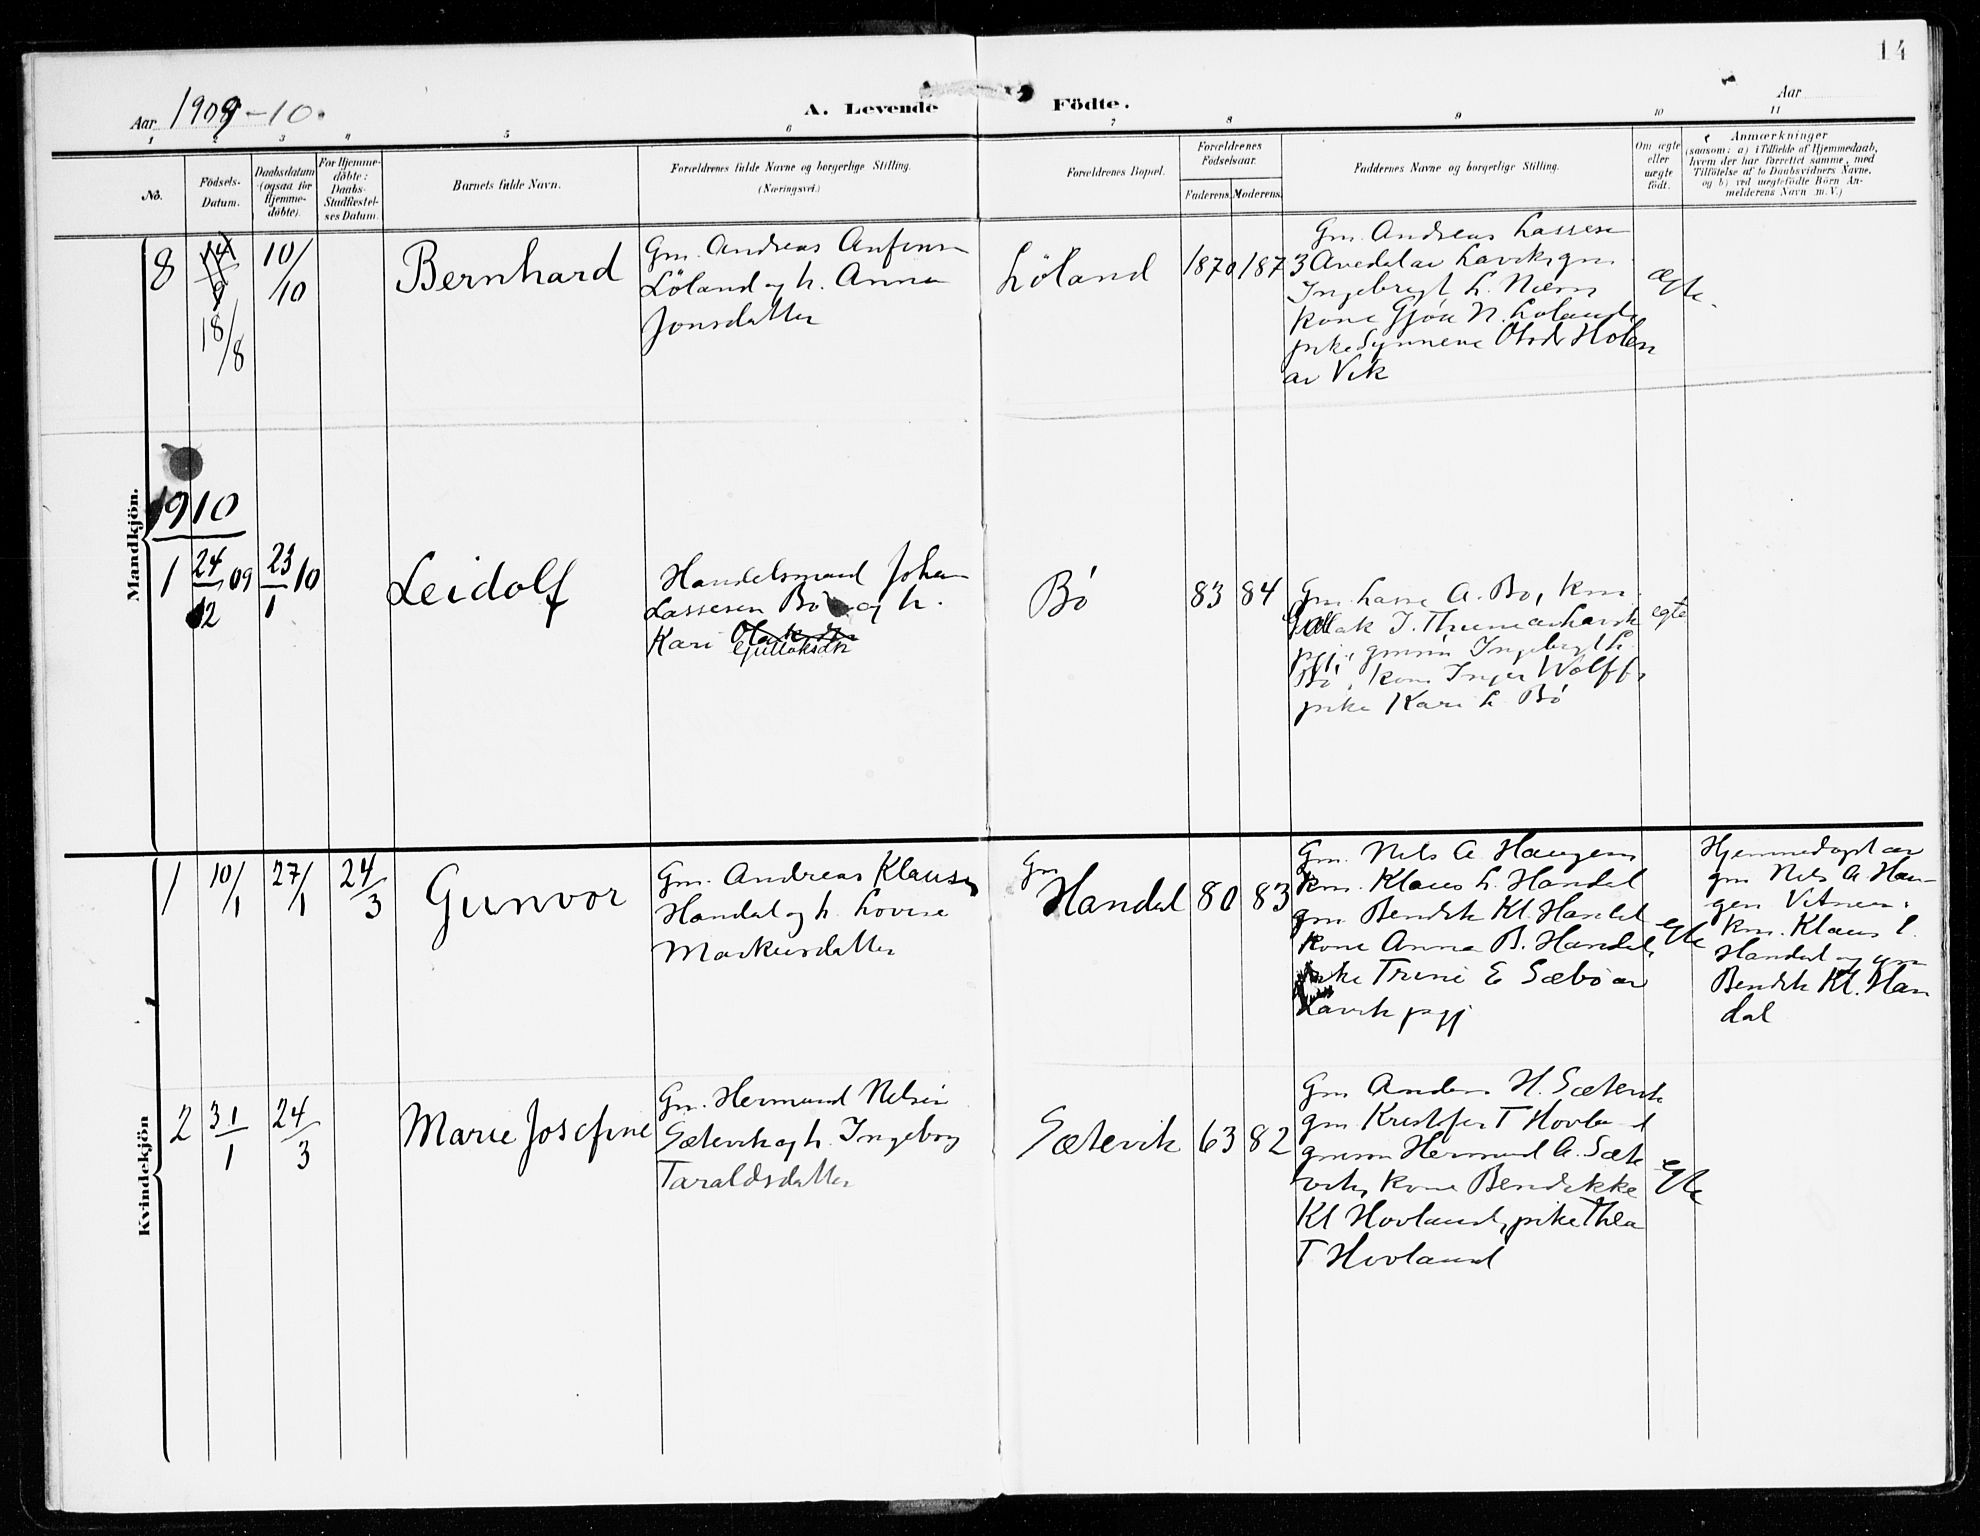 14
Aar 1909-10.
A. Levende Födte.
Aar
1 2 3 4 5 6 7 8 9 10 11
No.
Födsels-
Datum.
Daabsdatum
(ogsaa for
Hjemme-
döbte).
For Hjemme-
döbte:
Daabs-
Stadfæstel-
ses Datum.
Barnets fulde Navn.
Forældrenes fulde Navne og borgerlige Stilling.
(Næringsvei.)
Forældrenes Bopæl.
Forældrenes
Födselsaar.
Faderens. Moderens.
Faddernes Navne og borgerlige Stilling.
Om ægte
eller
uægte
födt.
Anmærkninger
(saasom: a) i Tilfælde af Hjemmedaab,
hvem der har forrettet samme, med
Tilföielse af to Daabsvidners Navne,
og b) ved uægtefödte Börn An-
melderens Navn m. V.)
Mandkjön.
8
14/9
18/8
10/10
Bernhard
Gm. Andreas Anfinsen
Löland og h. Anna
Jonsdatter
Löland
1870 1873
Gm. Andreas Lassesen
Avedal av Lavik, gm
Ingebrigt L. Næss
kone Gjöa N. Löland,
pike Synneve Olsdr Holen
av Vik
ægte.
1910
1
24/12 09
23/1 10
Leidolf
Handelsmand Johan
Lassesen Bö og h.
Kari
Gullaksdtr
Bö
83 84
Gm. Lasse A. Bö, km.
Gullak J. av Lavik
pgj., gmsön Ingebrigt L.
Bö, kone Inger Wolff,
pike Kari L. Bö
egte
Kvindekjön
1
10/1
27/1
24/3
Gunvor
Gm. Andreas Klausen
Handal og h. Lovise
Markusdatter
Gm
Handal
80 83
Gm. Nils A. Haugen,
km. Klaus L. Handal
gm Bendik Kl. Handal
kone Anna B. Handal,
pike Trine E Sæbö av
Lavik pgj
egte
Hjemmedöpt av
gm Nils A. Hau-
gen Vitner:
km. Klaus L.
Handal og gm
Bendik Kl. Han
dal
2
31/1
24/3
Marie Josefine
Gm. Hermund Nilsen
Sætevik og h. Ingeborg
Taraldsdatter
Sætevik
63 82
Gm Anders H. Sætevik
gm Kristofer T Hovland
gmsön Hermund A. Sæte
vik, kone Bendikke
Kl Hovland, pike Thea
T Hovland
egte